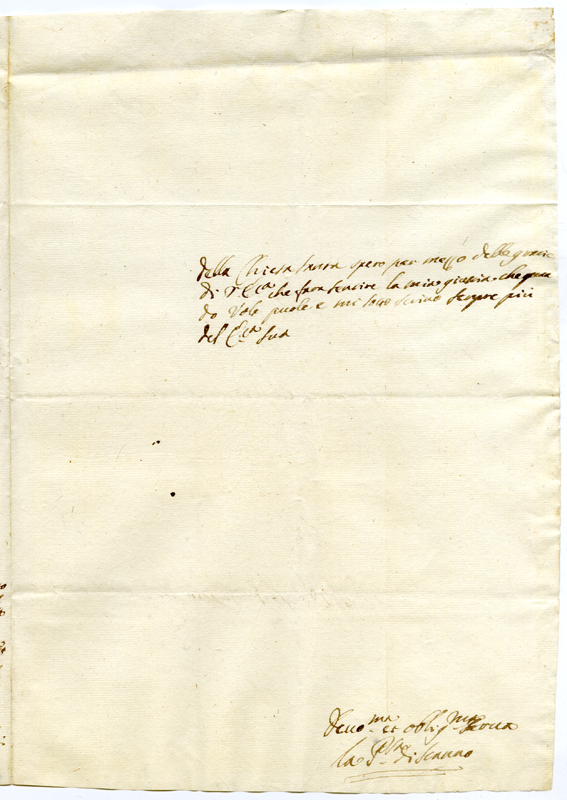 della Chiesa santa spero per mezzo delle grazie
di V. Ecc.a che farà sentire la mia giustizia che quan
do Vole puole e mi sotto scrivo sempre più
del Ecc.a Sua
Deuo.ma et oblig.ma Serua
la P. di Scanno